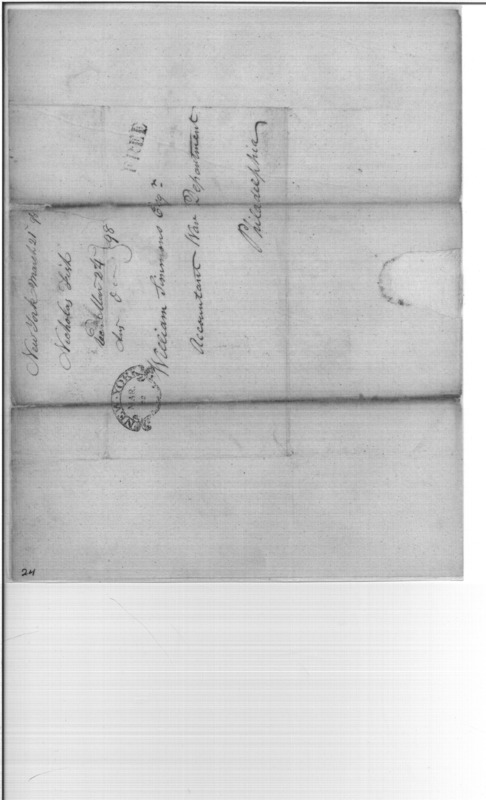 New York March 21
Nicholas Fish
98
FREE
NEW-YORK
MAR.
22
William Simmons Esqr.
Accountant War Department
Philadelphia
24